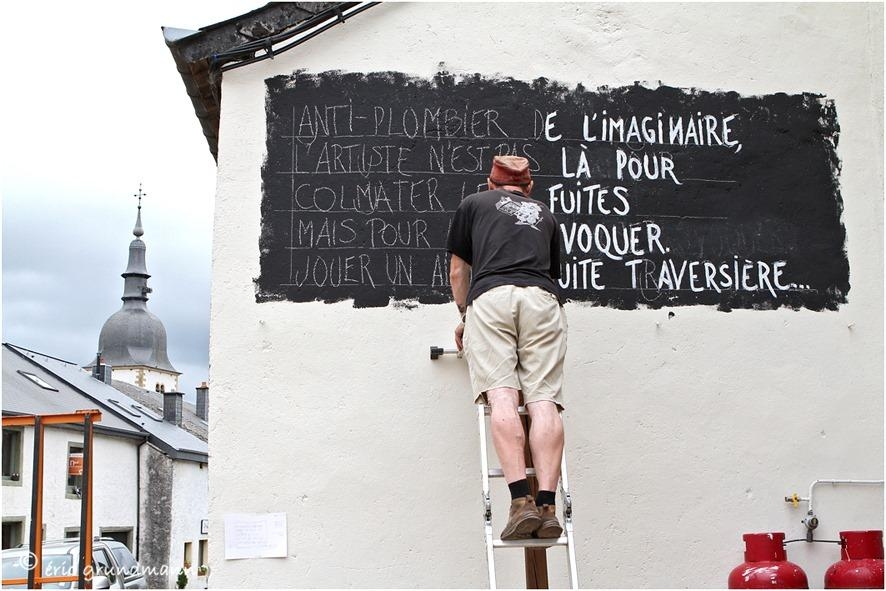 ANTI-PLOMBIER DE L'IMAGINAIRE,
L'ARTISTE N'EST PAS LÀ POUR
COLMATER FUITES
MAIS POUR VOQUER.
JOUER UN UITE TRAVERSIÈRE...
© éric grundmann